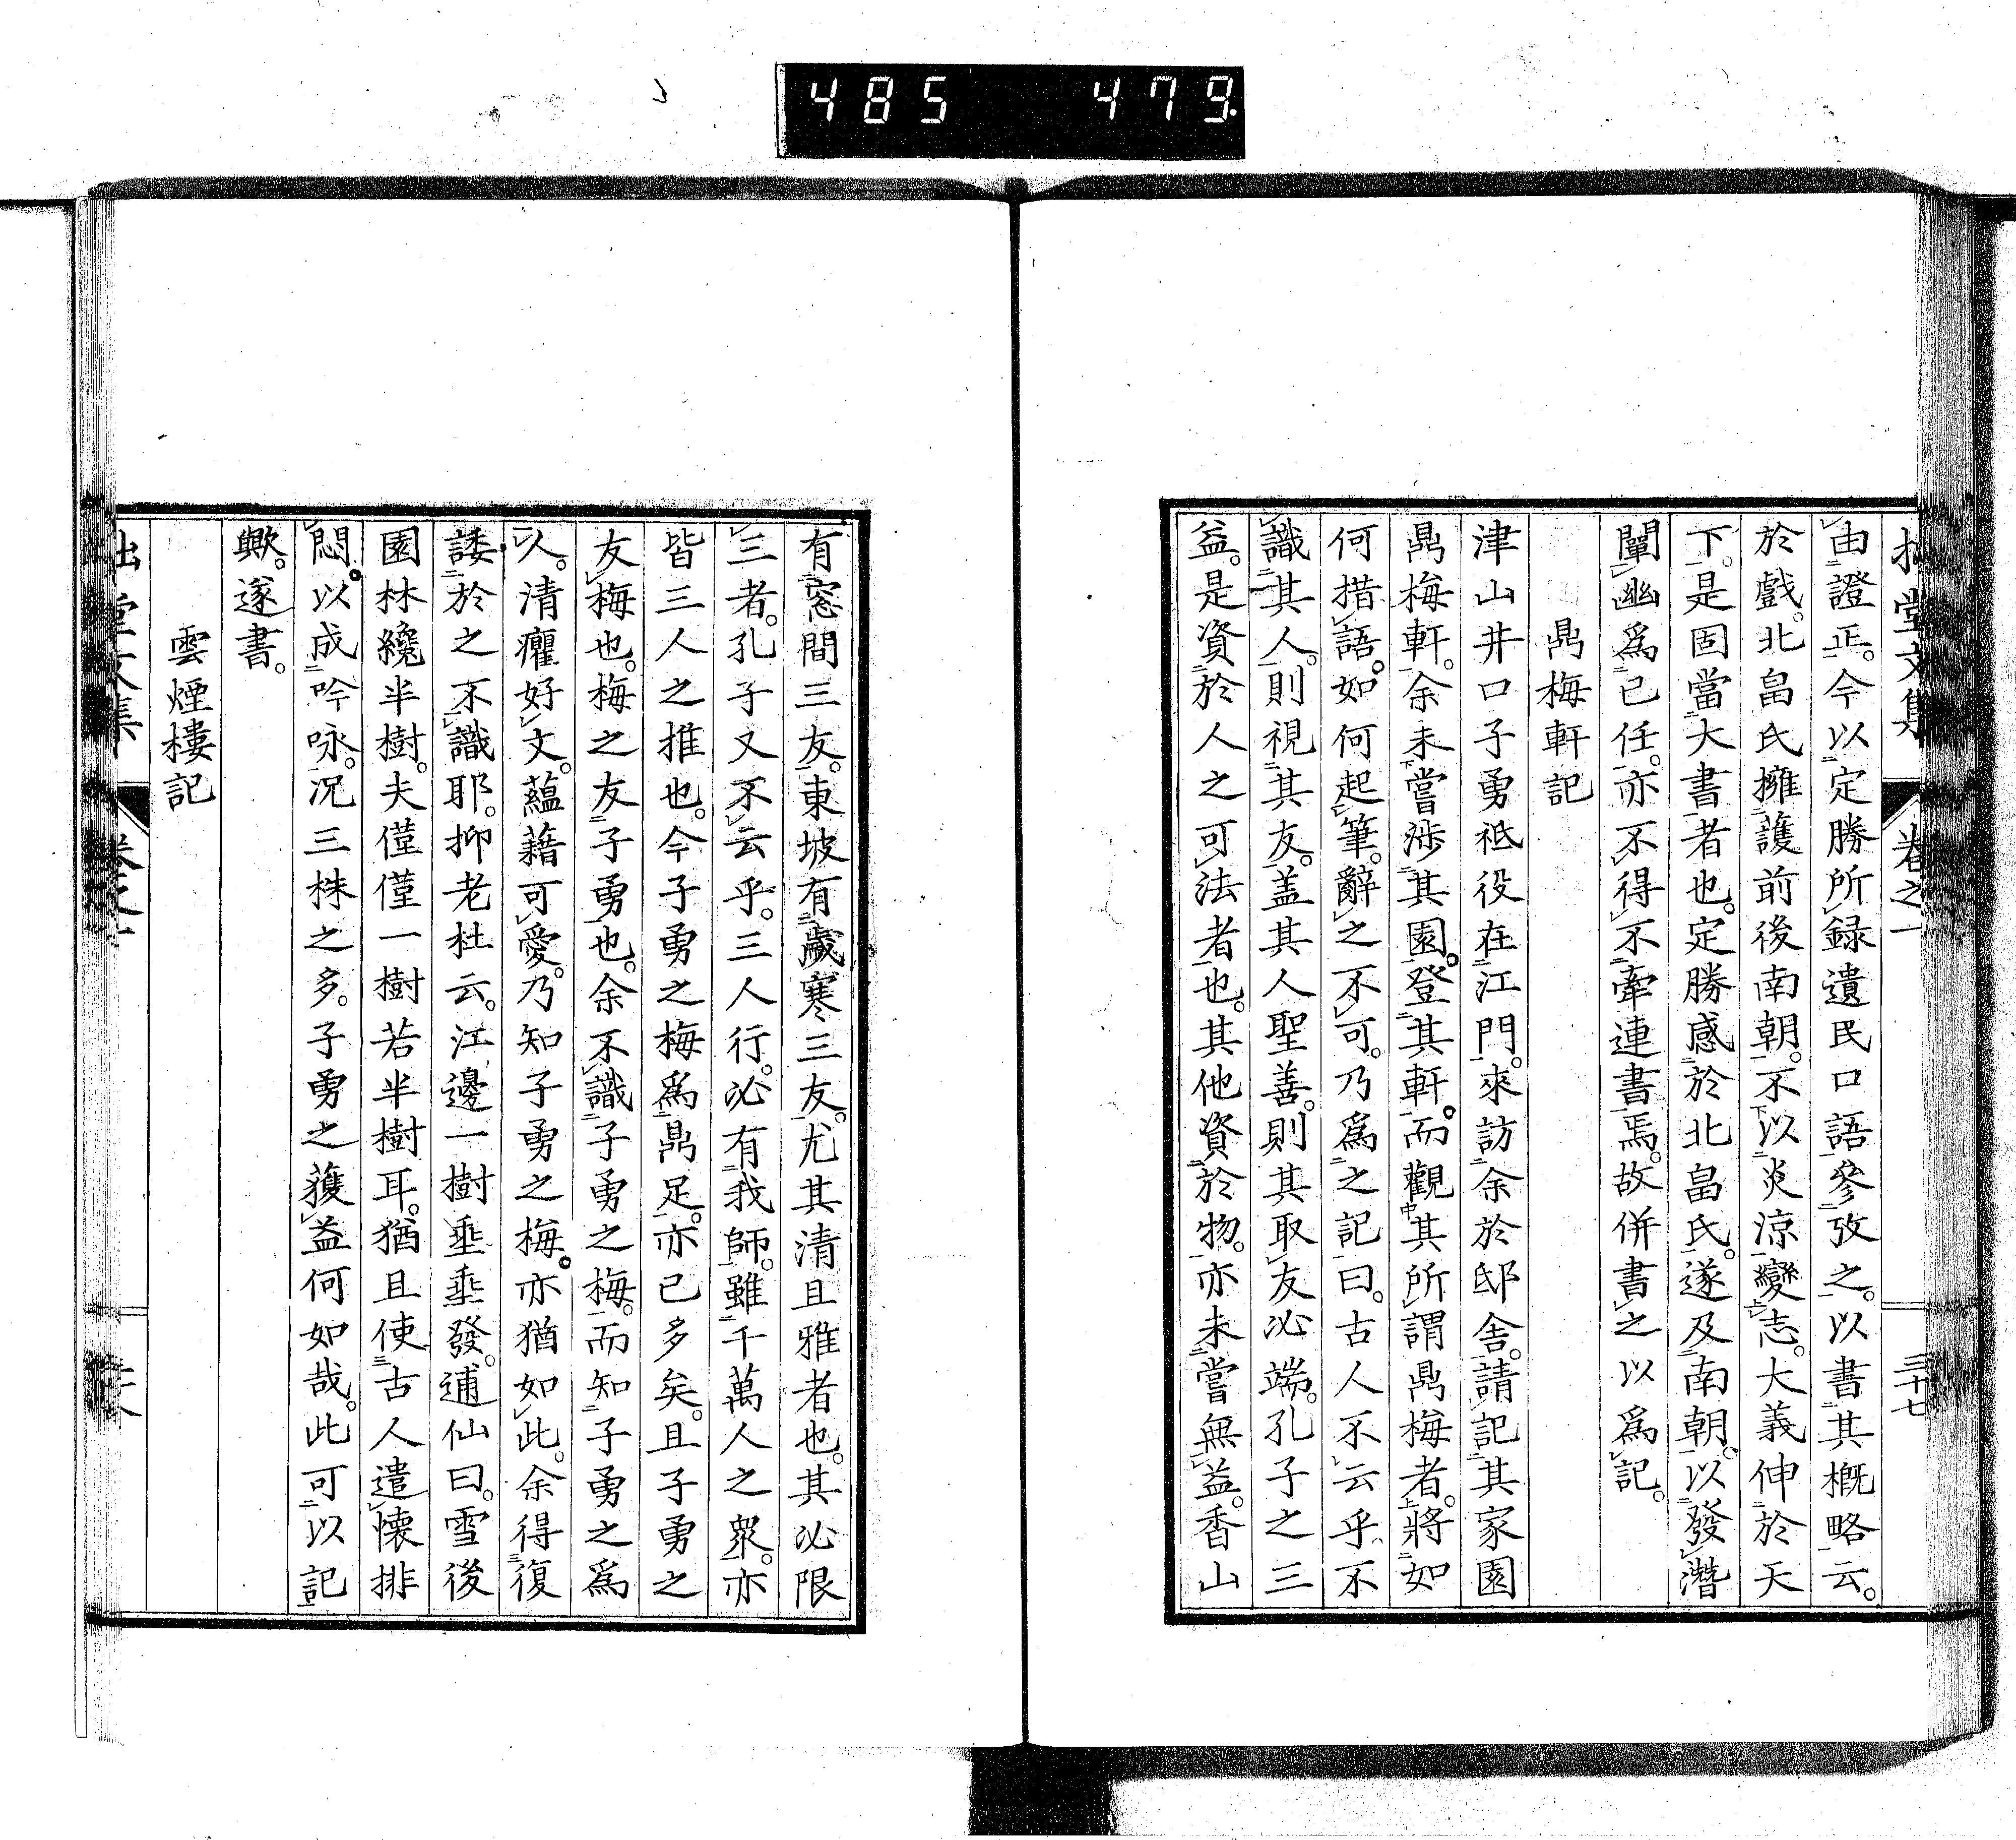 485 479
拙堂文集 卷之一 三十七
由證正。今以定勝所録遺民口語參攷之。以書其概略云。
於戲。北畠氏擁護前後南朝。不以炎涼變志。大義伸於天
下。是固當大書者也。定勝感於北畠氏。遂及南朝。以發潛
闡幽爲己任。亦不得不牽連書焉。故併書之以爲記。
鼎梅軒記
津山井口子勇祗役在江門。來訪余於邸舍。請記其家園
鼎梅軒。余未嘗涉其園。登其軒。而觀其所謂鼎梅者。將如
何措語。如何起筆。辭之不可。乃爲之記曰。古人不云乎。不
識其人。則視其友。蓋其人聖善。則其取友必端。孔子之三
益。是資於人之可法者也。其他資於物。亦未嘗無益。香山
有窓間三友。東坡有歲寒三友。尤其清且雅者也。其必限
三者。孔子又不云乎。三人行。必有我師。雖千萬人之衆。亦
皆三人之推也。今子勇之梅爲鼎足。亦已多矣。且子勇之
友梅也。梅之友子勇也。余不識子勇之梅。而知子勇之爲
人。清癯好文。蘊藉可愛。乃知子勇之梅。亦猶如此。余得復
諉於之不識耶。抑老杜云。江邊一樹垂垂發。逋仙曰。雪後
園林纔半樹。夫僅僅一樹若半樹耳。猶且使古人遣懷排
悶。以成吟咏。況三株之多。子勇之獲益何如哉。此可以記
歟。遂書。
雲煙樓記